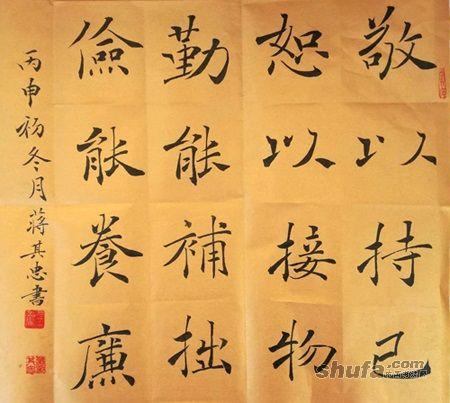 敬以持己
恕以接物
勤能補拙
儉能養廉
丙申初冬月蔣其忠書
shufa.com